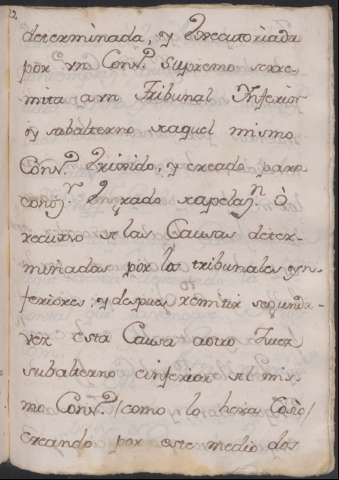 determinada, y Executoriada
por un Conv.º Supremo se re-
mita a un Tribunal Inferior
y subalterno de aquel mismo
Conv.º, y creado para
conoz.r en grado de apelaz.n ò
recurso de las Causas deter-
minadas por los tribunales yn-
feriores; y despues remitir segunda-
vez esta Causa a otro Juez
subalterno e inferior del mis-
mo Conv.º /como lo hera Coño/
creando por este medio dos